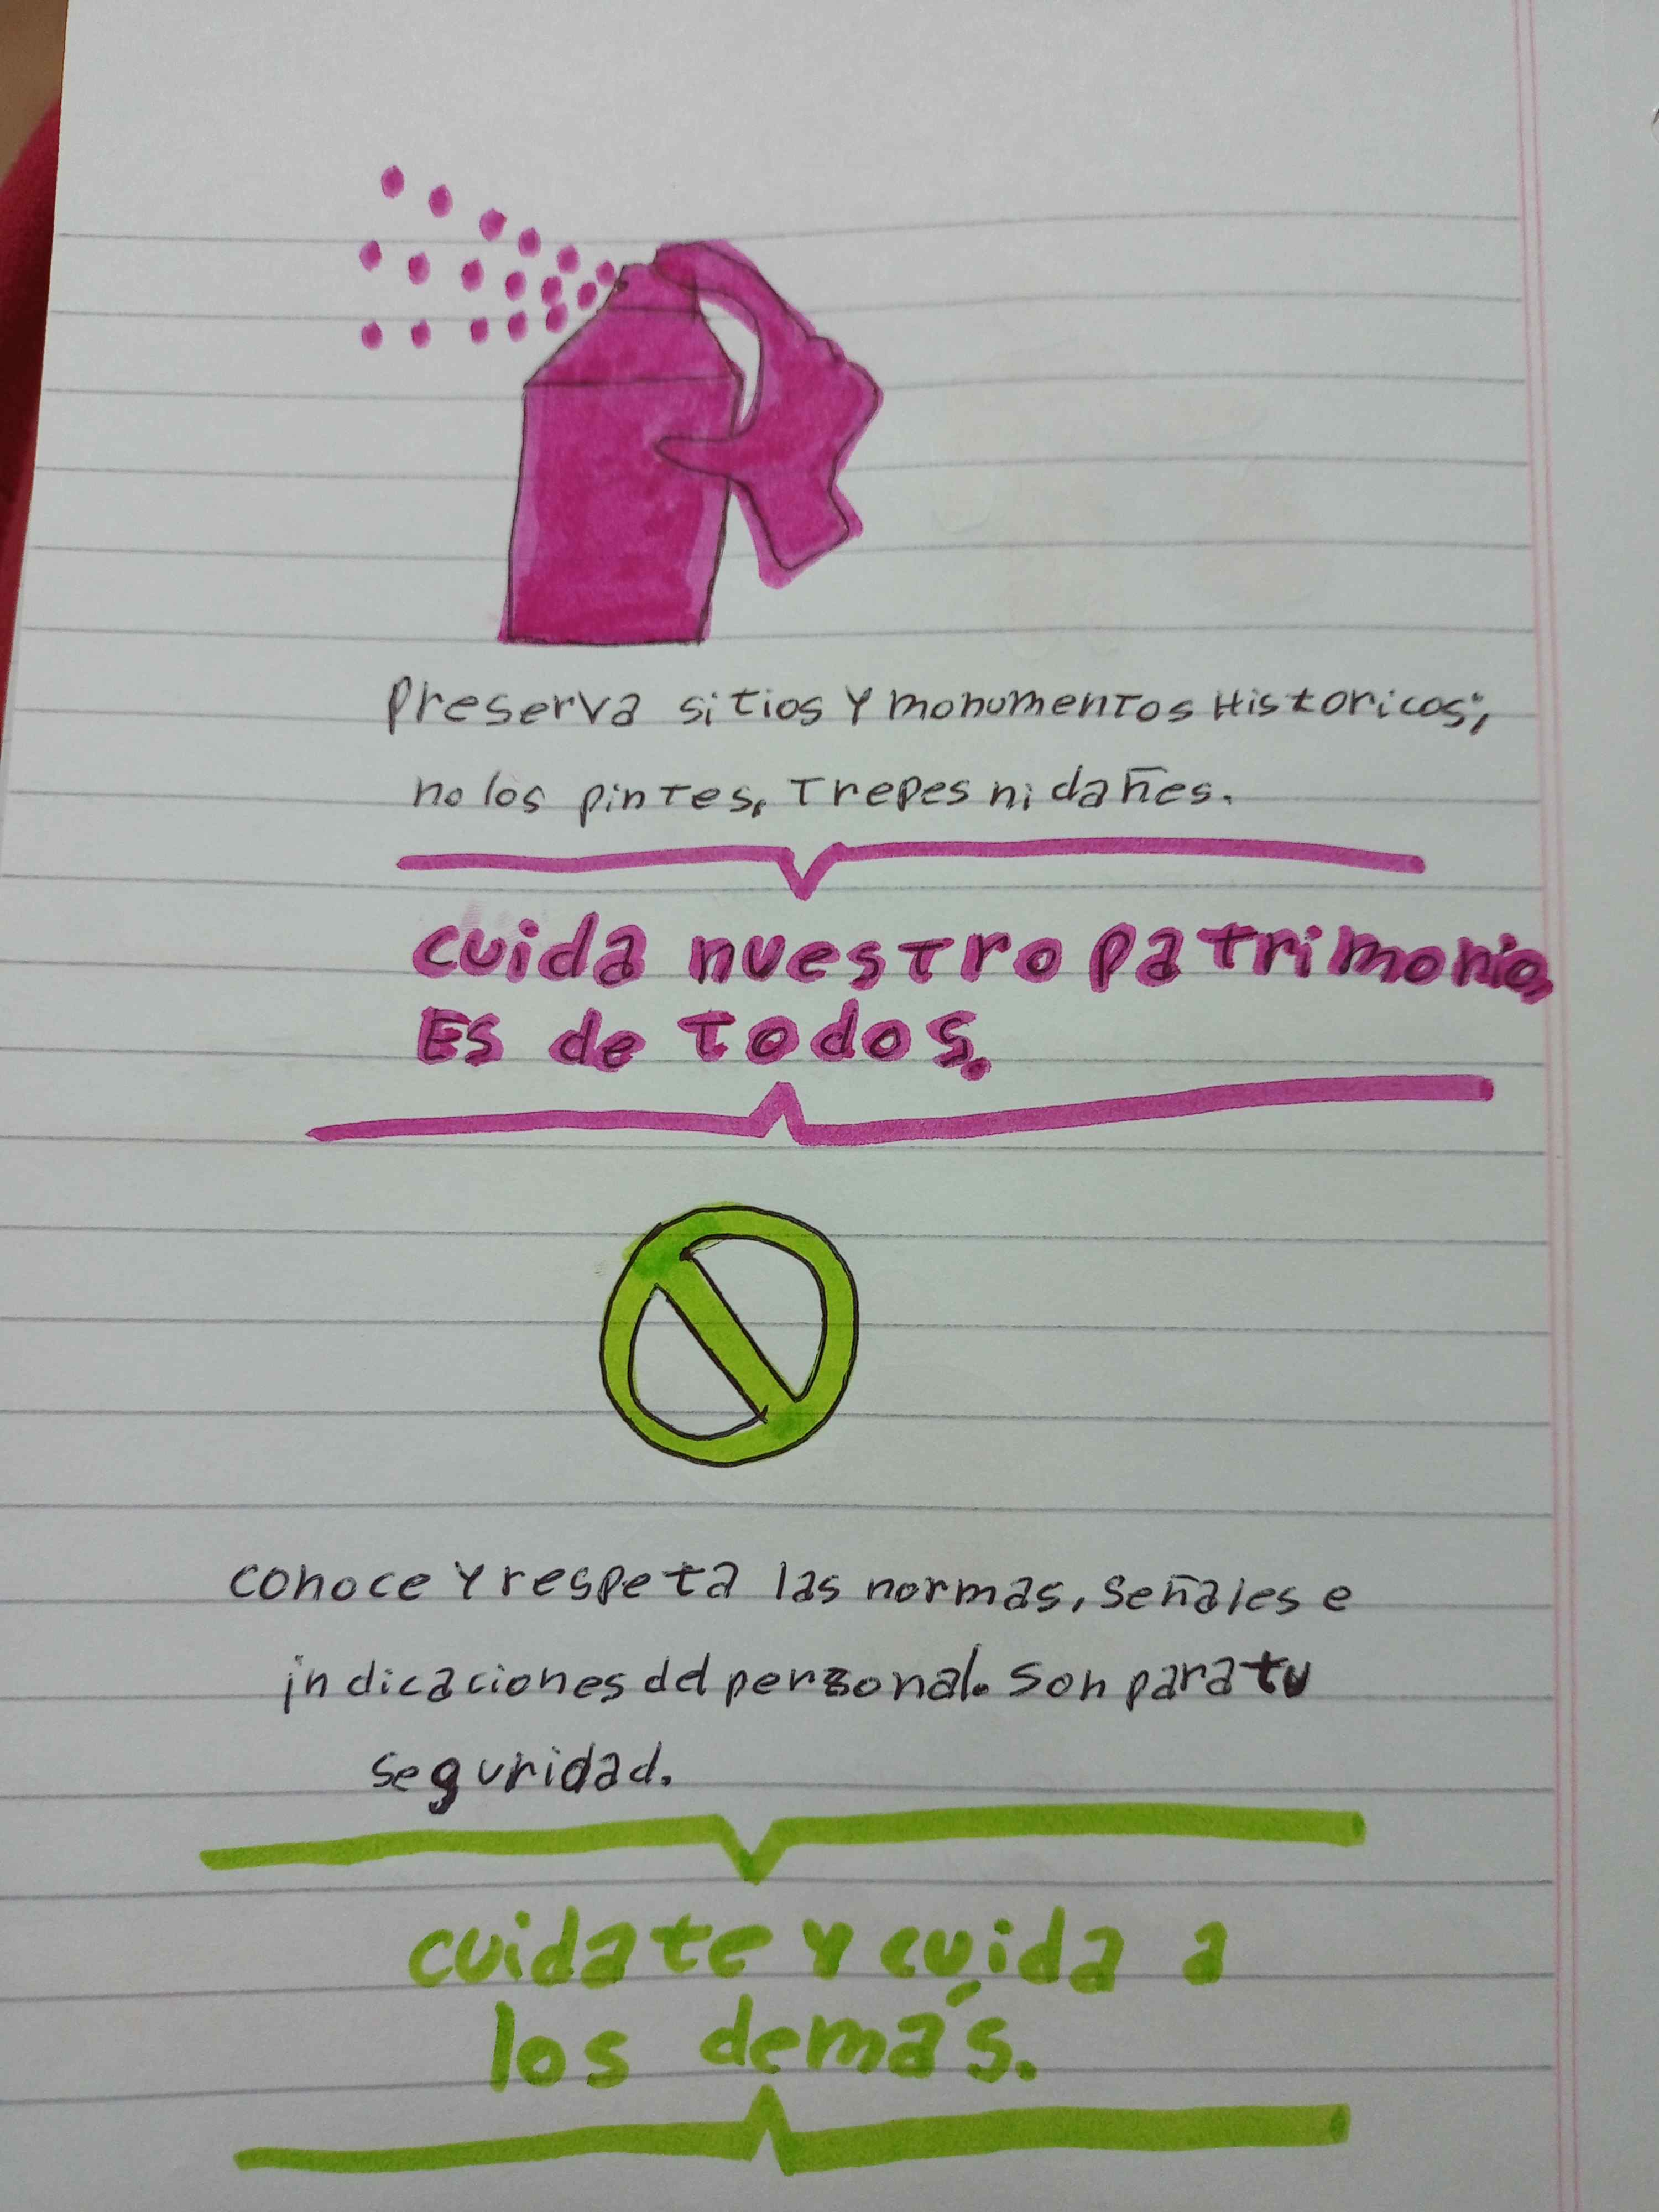 Preserva sitios y monumentos Historicos;
no los pintes, trepes ni dañes.
cuida nuestro patrimonio,
Es de todos.
conoce y respeta las normas, señales e
indicaciones del personal. Son para tu
seguridad.
cuidate y cuida a
los demás.